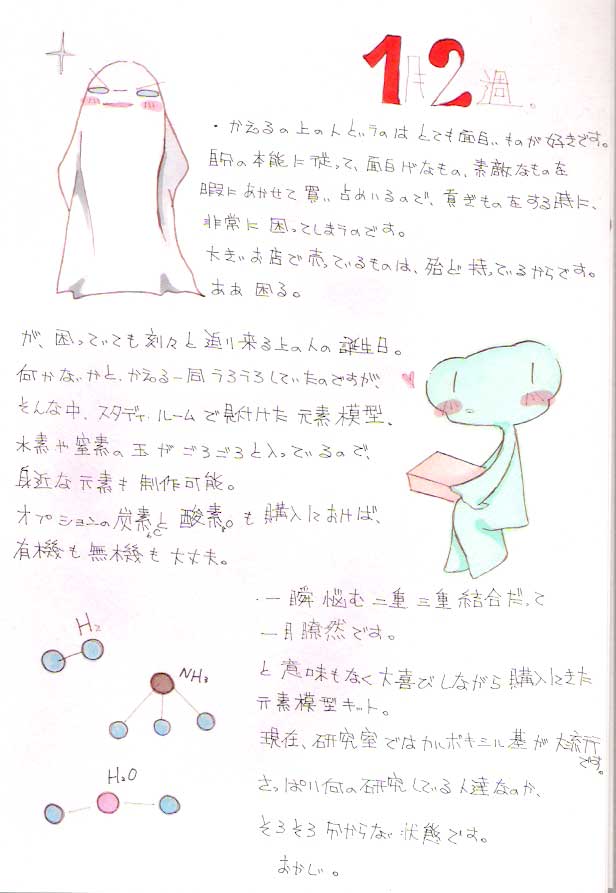 1月2週。
・かえるの上の人というのはとても面白いものが好きです。
自分の本能に従って、面白げなもの、素敵なものを
暇にあかせて買い占めいるので、貢ぎものをする時に、
非常に困ってしまうのです。
大きいお店で売っているものは、殆ど持っているからです。
ああ困る。
が、困っていても刻々と迫り来る上の人の誕生日。
何かないかと、かえる一同うろうろしていたのですが、
そんな中、スタディルームで見付けた元素模型、
水素や窒素の玉がごろごろと入っているので、
身近な元素も制作可能。
オプションの炭素と酸素も購入しておけば、
C
O
有機も無機も大丈夫。
・一瞬悩む二重三重結合だって
一目瞭然です。
と意味もなく大喜びしながら購入してきた
元素模型キット。
現在、研究室ではカルボキシル基が大流行
です。
さっぱり何の研究している人達なのか、
そろそろ分からない状態です。
おかし。
H2
NH3
H2O